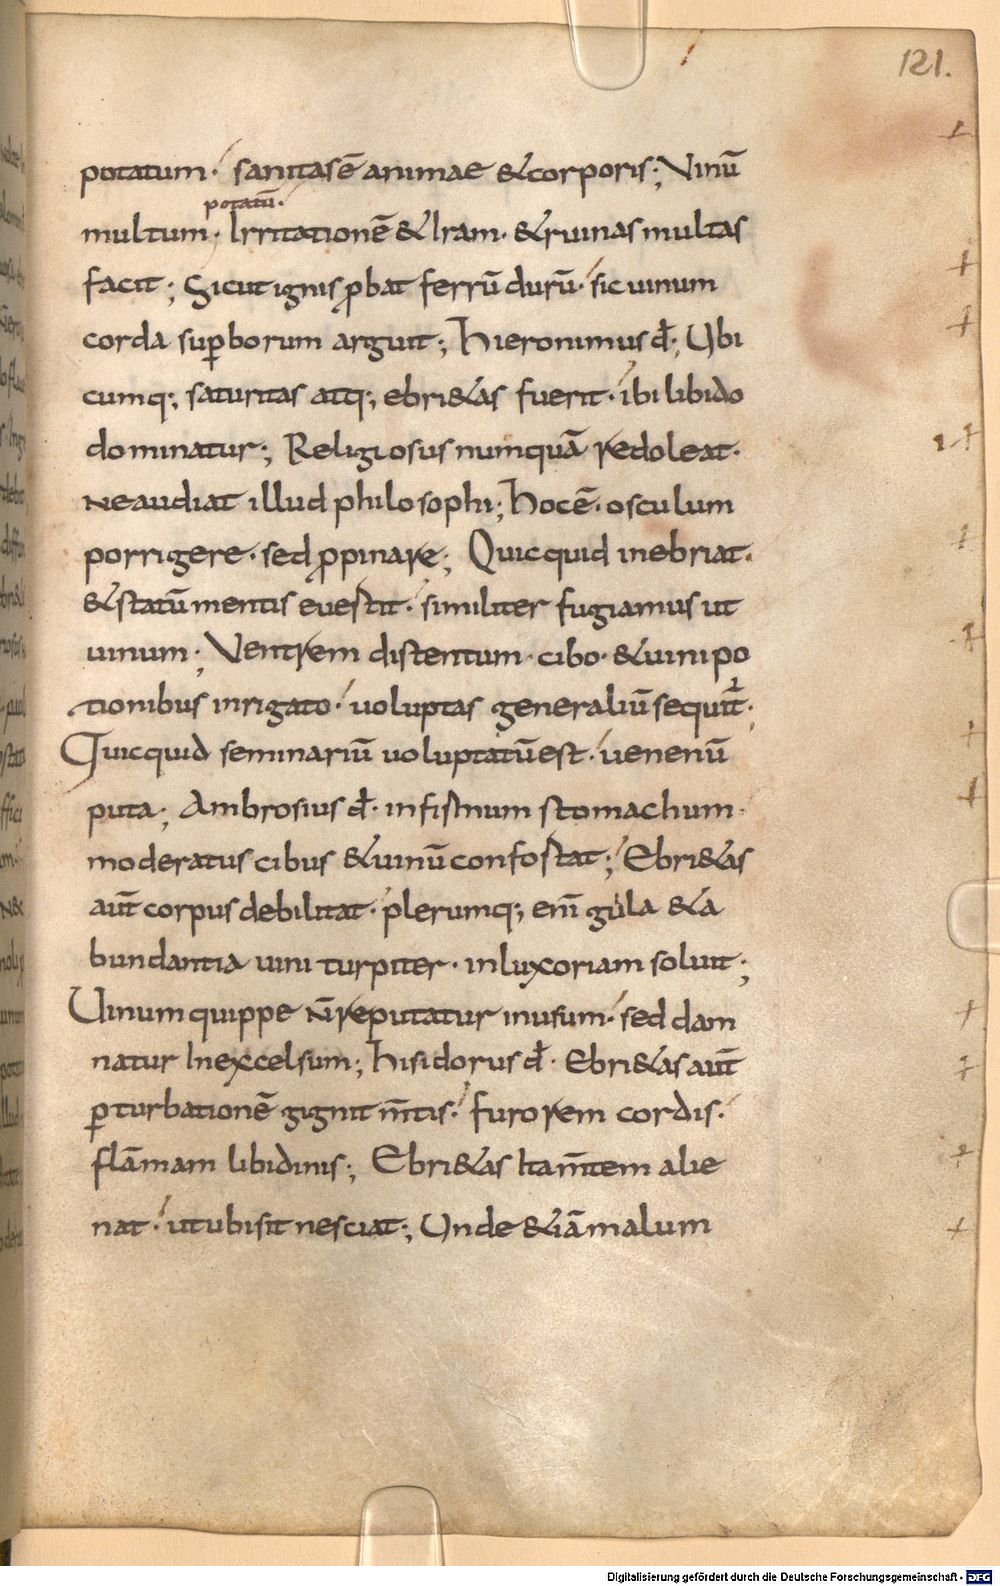 121.
potatum· sanitas ē animae & corporis; Vinū
potatū·
multum· Irritationē & Iram· & ruinas multas
facit; Sicut ignis ꝓbat ferrū durū· sic uinum
corda suꝑborum arguit; Hieronimus d̄; Ubi
cumq; saturitas atq; ebri&as fuerit· ibi libido
dominatur; Religiosus numquā redoleat·
Ne audiat illud philosophi; Hoc ē· osculum
porrigere· sed ꝓpinare; Quicquid inebriat·
& statū mentis euestit· similiter fugiamus ut
uinum; Ventrem distentum· cibo· & uini po
tionibus inrigato· uoluptas generaliū sequit̄;
Quicquid seminariū uoluptatū est· uenenū
puta; Ambrosius d̄· infismum stomachum·
moderatus cibus & uinū confostat; Ebri&as
aut̄ corpus debilitat· plerumq; eni̅ gula & a
bundantia uini turpiter· in luxoriam soluit;
Uinum quippe n̄ reputatur in usum· sed dam
natur In excelsum; Hisidorus d̄· Ebri&as aut̄
ꝑturbationē gignit m̄tis· furorem cordis·
flāmam libidinis; Ebri&as Ita m̄tem alie
nat· ut ubi sit nesciat; Unde & iā malum
Digitalisierung gefördert durch die Deutsche Forschungsgemeinschaft - DFG